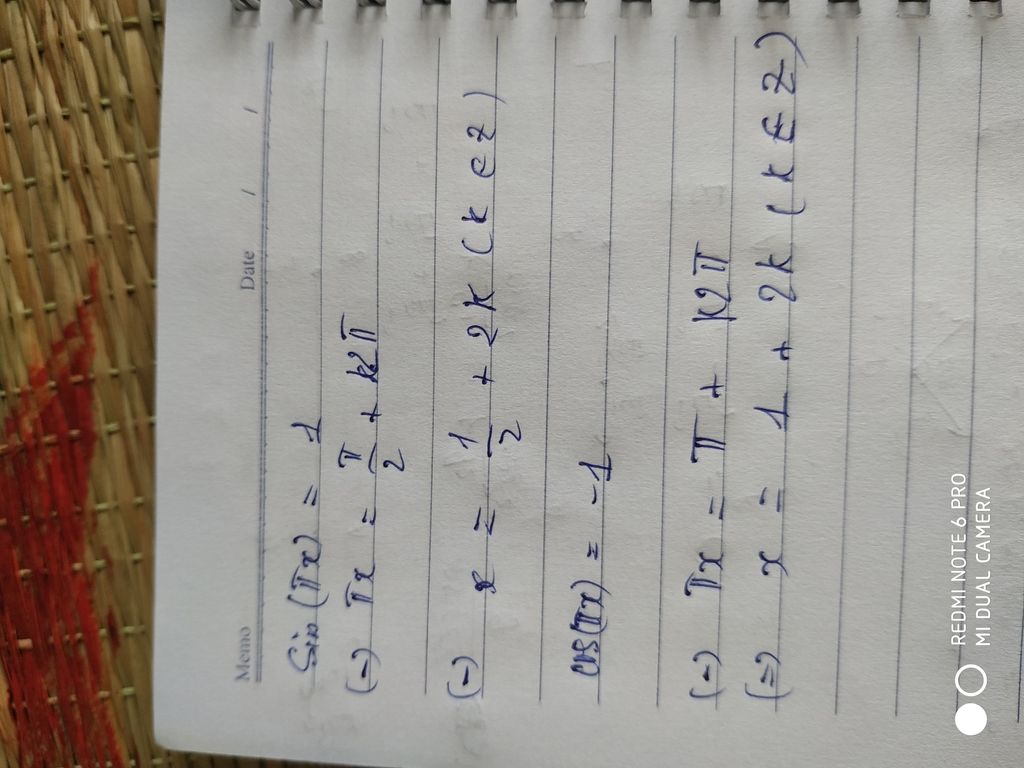 Memo Date / /
Sin (πx) = 1
(-) πx = π/2 + k2π
(-) x = 1/2 + 2K (K ∈ Z)
cos(πx) = -1
(-) πx = π + k2π
(=) x = 1 + 2k (k ∈ Z)
REDMI NOTE 6 PRO
MI DUAL CAMERA